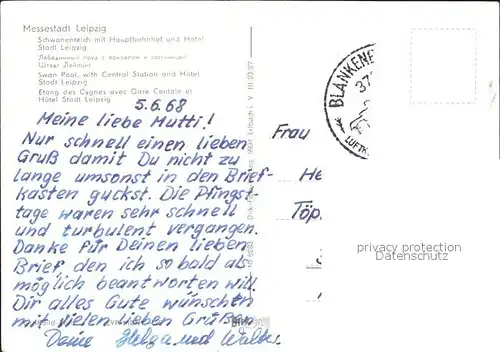 Messestadt Leipzig
Schwanenteich mit Hauptbahnhof und Hotel
Stadt Leipzig
Лебединый пруд с вокзалом и гостиницей
Штадт Лейпциг
Swan Pool, with Central Station and Hotel
Stadt Leipzig
Etang des Cygnes avec Gare Centale et
Hôtel Stadt Leipzig
5.6.68
Meine liebe Mutti!
Nur schnell einen lieben
Gruß damit Du nicht zu
lange umsonst in den Brief-
kasten guckst. Die Pfingst-
tage waren sehr schnell
und turbulent vergangen.
Danke für Deinen lieben
Brief den ich so bald als
möglich beantworten will.
Dir alles Gute wünschen
mit vielen lieben Grüßen
Deine Helga und Walter
III 23 37
Frau
He
Töp
BLANKENB
37
LUFTK
privacy protection
Datenschutz